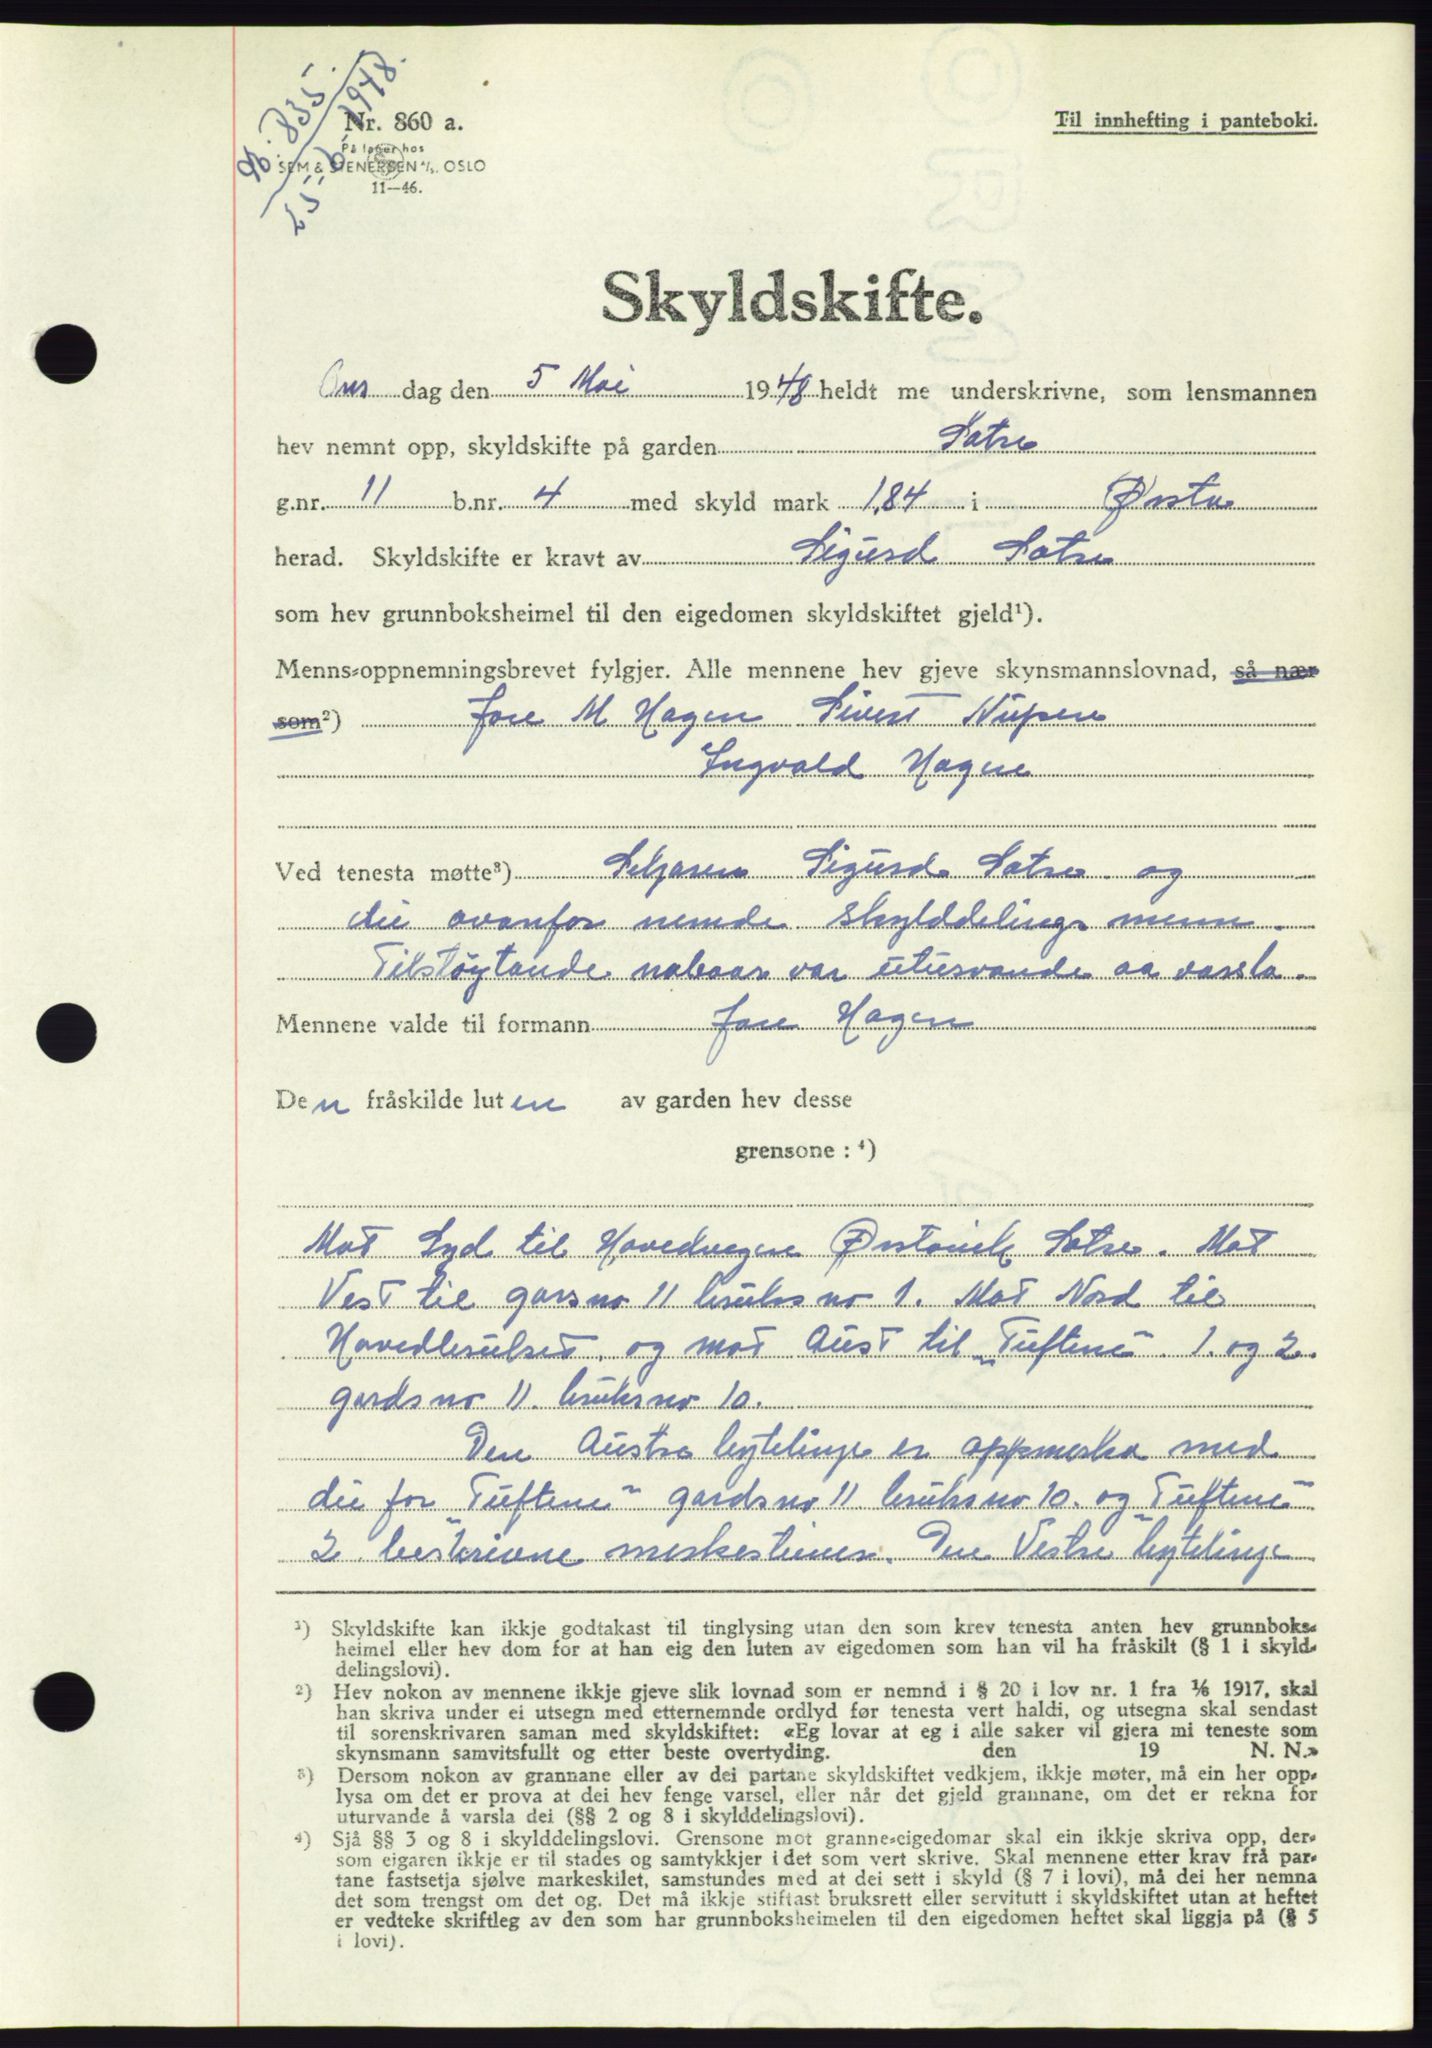 №. 835.
25-6-1948.
Nr. 860 a.
På lager hos
SEM & STENERSEN A/S. OSLO
11—46.
Til innhefting i panteboki.
Skyldskifte.
Ons dag den 5 Mai 1948 heldt me underskrivne, som lensmannen
hev nemnt opp, skyldskifte på garden Satre
g.nr. 11 b.nr. 4 med skyld mark 1,84 i Ørsta
herad. Skyldskifte er kravt av Sigurd Satre
som hev grunnboksheimel til den eigedomen skyldskiftet gjeld¹).
Menns-oppnemningsbrevet fylgjer. Alle mennene hev gjeve skynsmannslovnad, så nær
som²) Jon M Hagen Sivert Nupen
Ingvald Hagen
Ved tenesta møtte³) Seljaren Sigurd Satre og
dei ovanfor nemde skylddelings menn.
Tilstøytande naboar var uturvande aa varsla.
Mennene valde til formann Jon Hagen
Den fråskilde luten av garden hev desse
grensone : ⁴)
Mot Syd til Hovedvegen Ørstavik Satre. Mot
Vest til garsno 11 bruks no 1. Mot Nord til
Hovedbruket, og mot Aust til "Tuftene" 1. og 2.
gards no 11. bruks no 10.
Den Austre bytelinje er oppmerka med
dei for "Tuftene" gards no 11 bruks no 10. og "Tuftene"
2 beskrivne merkesteiner. Den Vestre bytelinje
¹) Skyldskifte kan ikkje godtakast til tinglysing utan den som krev tenesta anten hev grunnboks-
heimel eller hev dom for at han eig den luten av eigedomen som han vil ha fråskilt (§ 1 i skyld-
delingslovi).
²) Hev nokon av mennene ikkje gjeve slik lovnad som er nemnd i § 20 i lov nr. 1 fra 1/6 1917, skal
han skriva under ei utsegn med etternemnde ordlyd før tenesta vert haldi, og utsegna skal sendast
til sorenskrivaren saman med skyldskiftet: «Eg lovar at eg i alle saker vil gjera mi teneste som
skynsmann samvitsfullt og etter beste overtyding. den 19 N. N.»
³) Dersom nokon av grannane eller av dei partane skyldskiftet vedkjem, ikkje møter, må ein her opp-
lysa om det er prova at dei hev fenge varsel, eller når det gjeld grannane, om det er rekna for
uturvande å varsla dei (§§ 2 og 8 i skylddelingslovi).
⁴) Sjå §§ 3 og 8 i skylddelingslovi. Grensone mot granne-eigedomar skal ein ikkje skriva opp, der-
som eigaren ikkje er til stades og samtykkjer i det som vert skrive. Skal mennene etter krav frå par-
tane fastsetja sjølve markeskilet, samstundes med at dei sett i skyld (§ 7 i lovi), må dei her nemna
det som trengst om det og. Det må ikkje stiftast bruksrett eller servitutt i skyldskiftet utan at heftet
er vedteke skriftleg av den som har grunnboksheimelen til den eigedomen heftet skal liggja på (§ 5
i lovi).